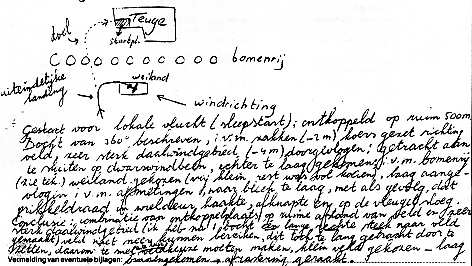 doel
Teuge
startpl.
bomenrij
uiteindelijke
landing
weiland
windrichting
Gestart voor lokale vlucht (sleepstart); ontkoppeld op ruim 500m
Bocht van 360° beschreven, i.v.m. zakken (-2m) koers gezet richting
veld, zeer sterk daalwindgebied (-4m) doorgevlogen; getracht aan
te sluiten op dwarswindbeen, echter te laag (gekomen) i.v.m. bomenrij
(zie tek.) weiland gekozen (vrij klein, rest was vol koeien), laag aange-
vlogen i.v.m. afmetingen, waar bleek te laag, met als gevolg, dat
prikkeldraad in wieldeur haakte, afknapte en op de vleugel vloog.
Conclusie: combinatie van ontkoppelplaats op ruime afstand van veld en zeer
sterk daalwindgebied (ik heb na 1 bocht een lange rechte steek naar veld
gemaakt) veld net niet kunnen bereiken, dit toch te lang getracht door te
zetten, daarom te snel veldkeuze moeten maken, klein veld gekozen - laag
Vermelding van eventuele bijlagen: